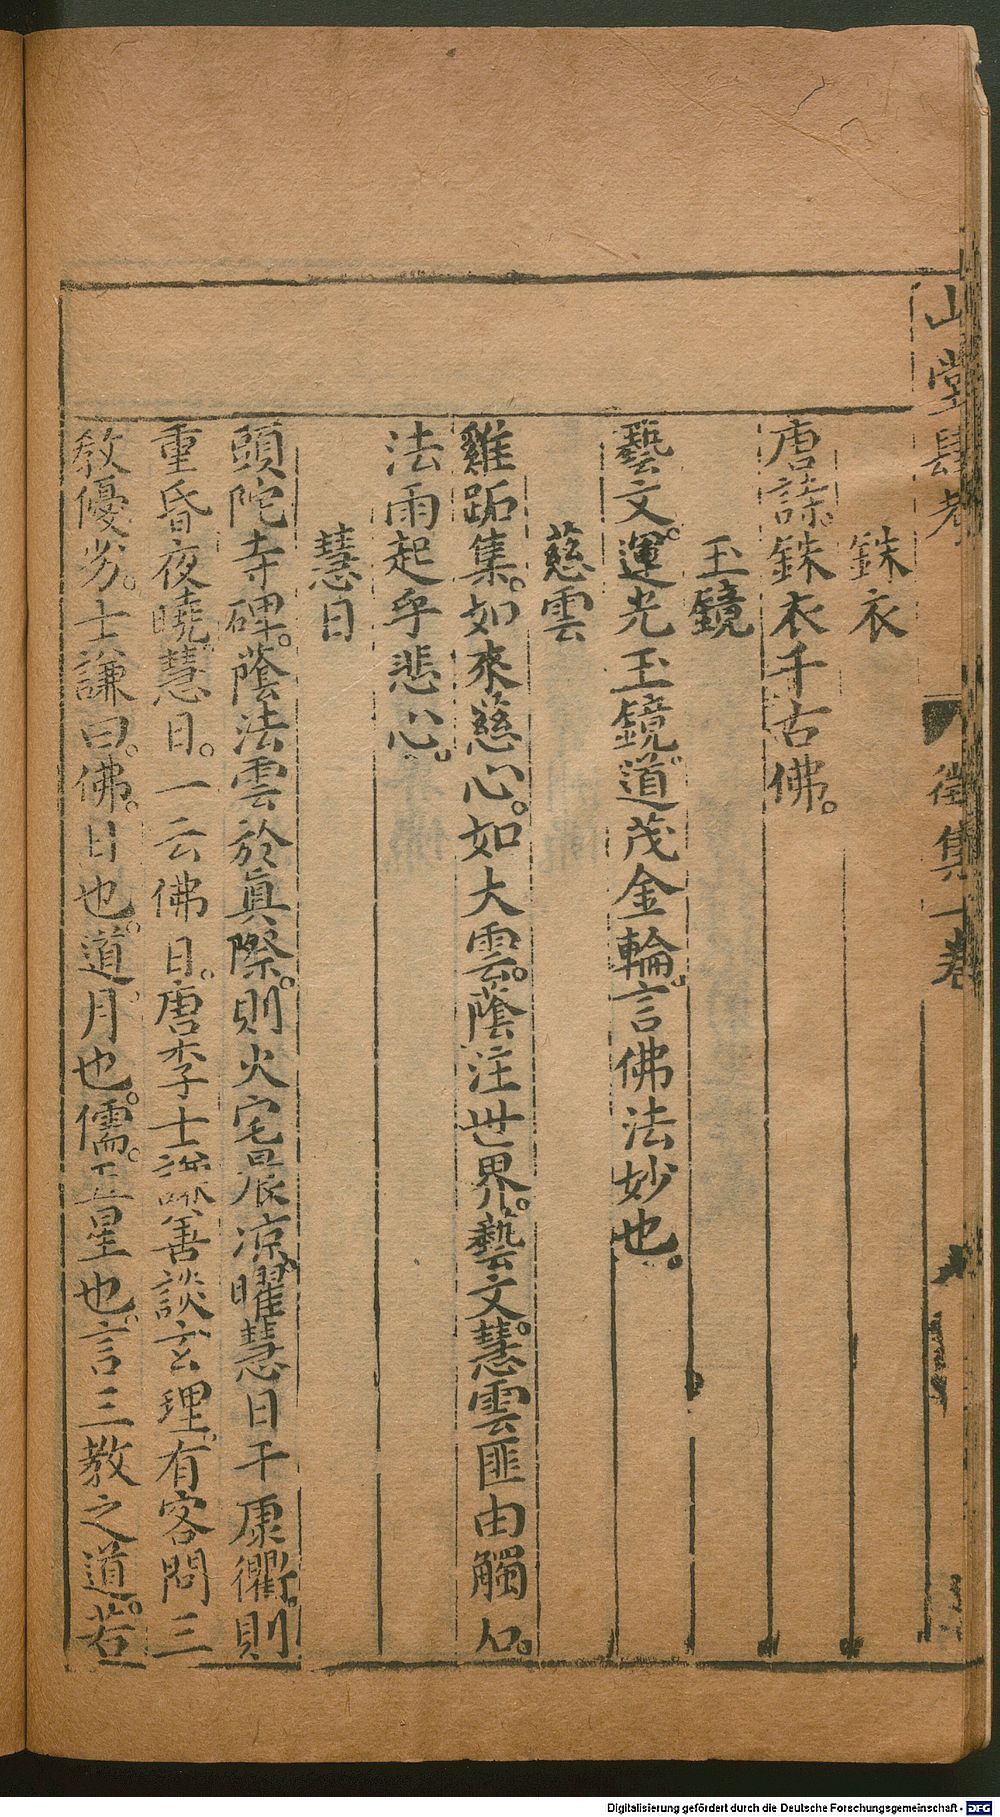 山堂肆考 徵集一卷
銖衣
唐詩。銖衣千古佛。
玉鏡
藝文。運光玉鏡。道茂金輪。言佛法妙也。
慈雲
雞跖集。如來慈心。如大雲。蔭注世界。藝文。慧雲匪由觸石。
法雨起乎悲心。
慧日
頭陀寺碑。蔭法雲於真際。則火宅晨凉。曜慧日于康衢。則
重昏夜曉。慧日。一云佛日。唐李士謙善談玄理。有客問三
教優劣。士謙曰。佛。日也。道。月也。儒。五星也。言三教之道。若
Digitalisierung gefördert durch die Deutsche Forschungsgemeinschaft - DFG